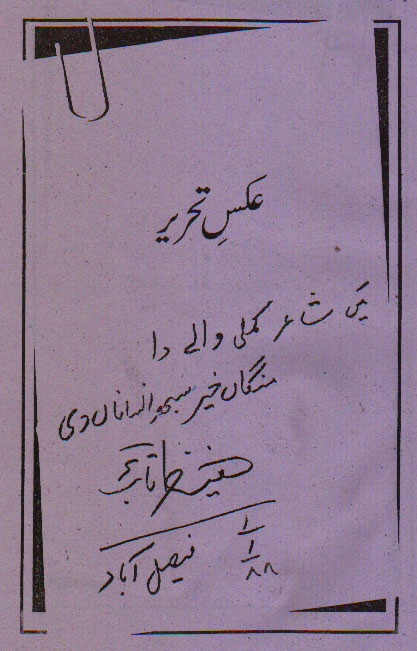 عکسِ تحریر
میں شاعر کملی والے دا
منگاں خیر سبھو انساناں دی
حفیظ تائب
۱/۱/۸۸
فیصل آباد